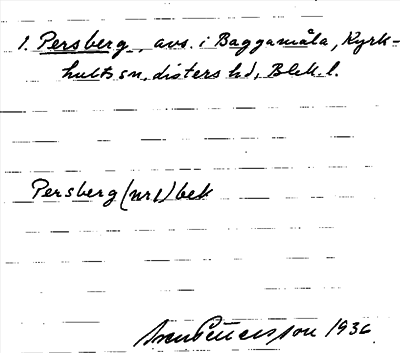 1. Persberg, avs. i Baggamåla, Kyrk-
hults sn, Listers hd, Blek. l.
Persberg (nr 1) bek
Sven Pettersson 1936